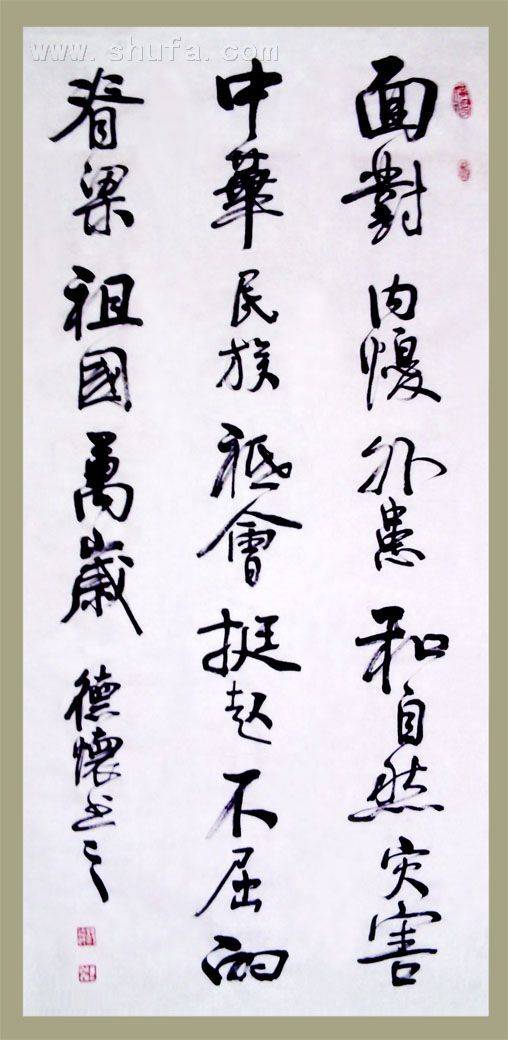 www.shufa.com
面對内憂外患和自然灾害
中華民族祗會挺起不屈的
脊梁祖國萬歲
德懷书之